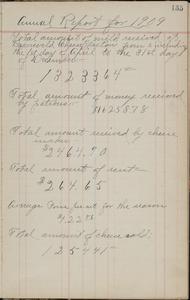 135
Annual Report for 1909
Total amount of milk received at
Cheese Factory from & including
the 1st day of April to the 31st day
of December
1323364
Total amount of money received
by patrons
Total amount received by cheese
maker
$2464.70
Total amount of rent
$264.65
Average Price for the season
Total amount of cheese sold